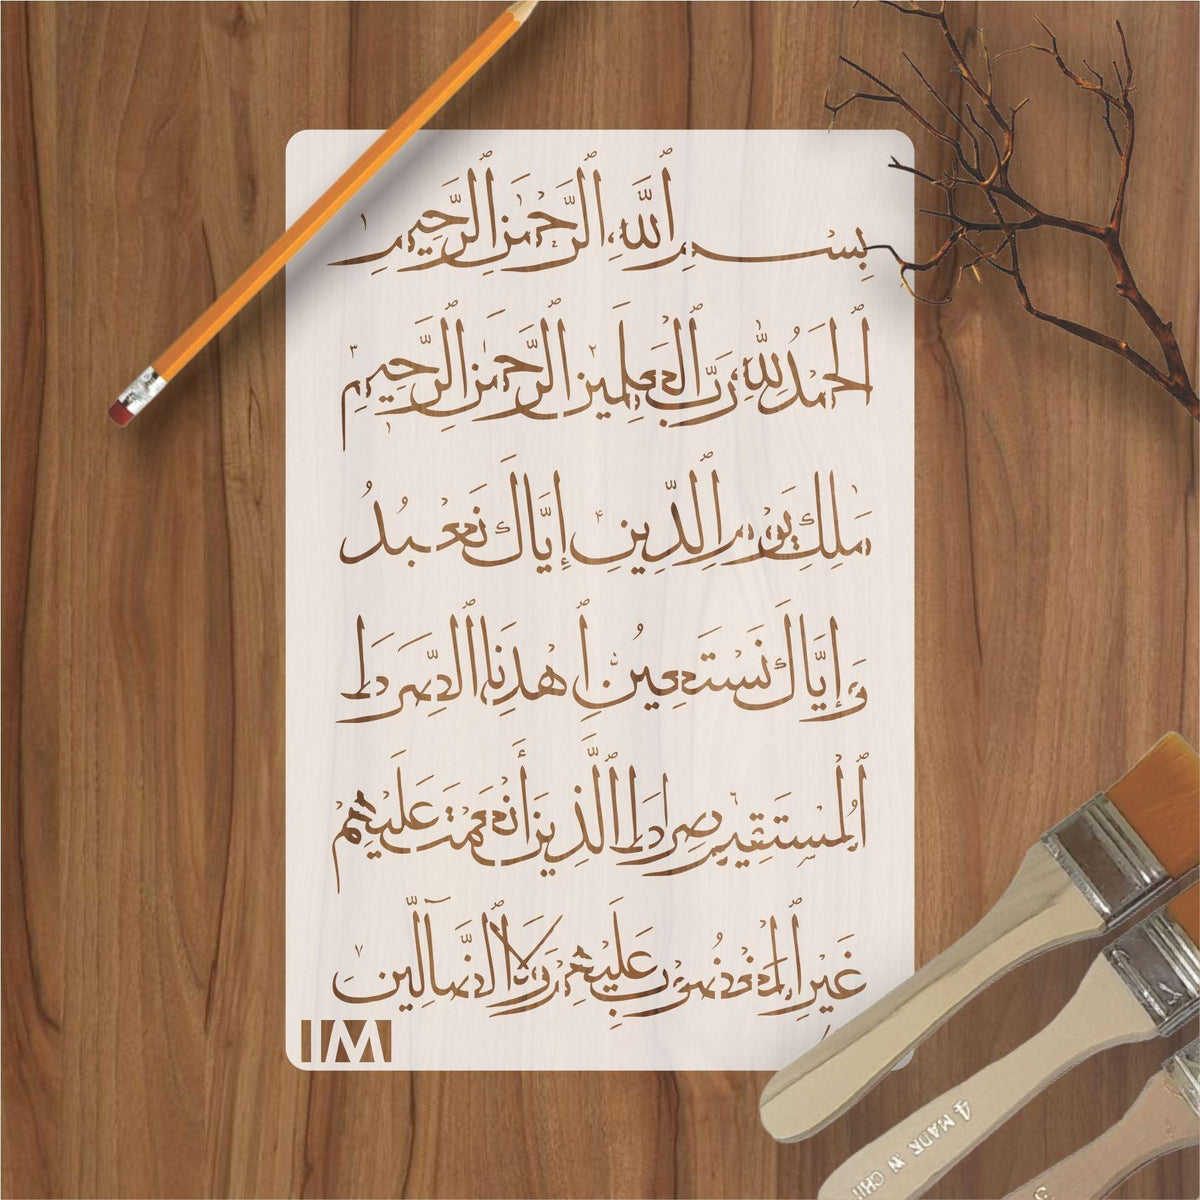 بِسْمِ ٱللَّهِ ٱلرَّحْمَٰنِ ٱلرَّحِيمِ ١
ٱلْحَمْدُ لِلَّهِ رَبِّ ٱلْعَٰلَمِينَ ٢ ٱلرَّحْمَٰنِ ٱلرَّحِيمِ ٣
مَٰلِكِ يَوْمِ ٱلدِّينِ ٤ إِيَّاكَ نَعْبُدُ
وَإِيَّاكَ نَسْتَعِينُ ٥ ٱهْدِنَا ٱلصِّرَٰطَ
ٱلْمُسْتَقِيمَ ٦ صِرَٰطَ ٱلَّذِينَ أَنْعَمْتَ عَلَيْهِمْ
غَيْرِ ٱلْمَغْضُوبِ عَلَيْهِمْ وَلَا ٱلضَّآلِّينَ ٧
IM
4 MADE IN CHI